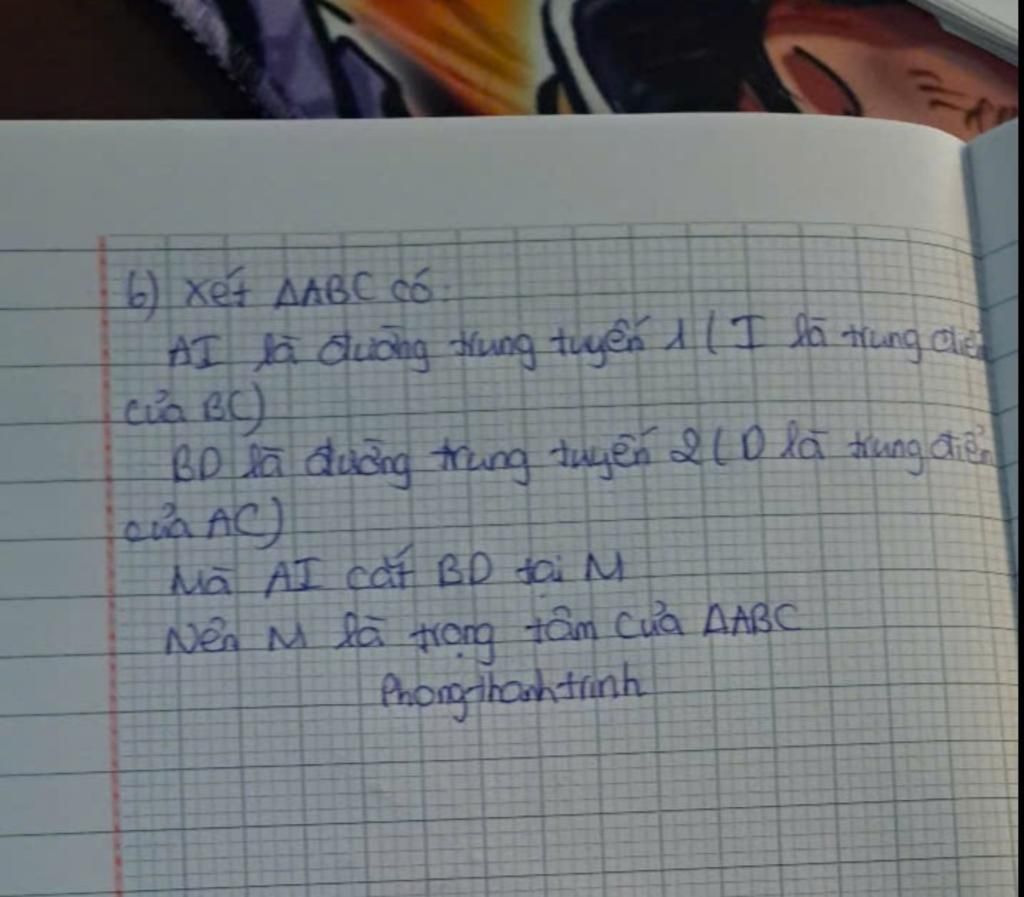 b) Xét ΔABC có:
AI là đường trung tuyến 1 ( I là trung điể
của BC)
BD là đường trung tuyến 2 ( D là trung điểm
của AC)
Mà AI cắt BD tại M
Nên M là trọng tâm của ΔABC
Phongthanhtrinh